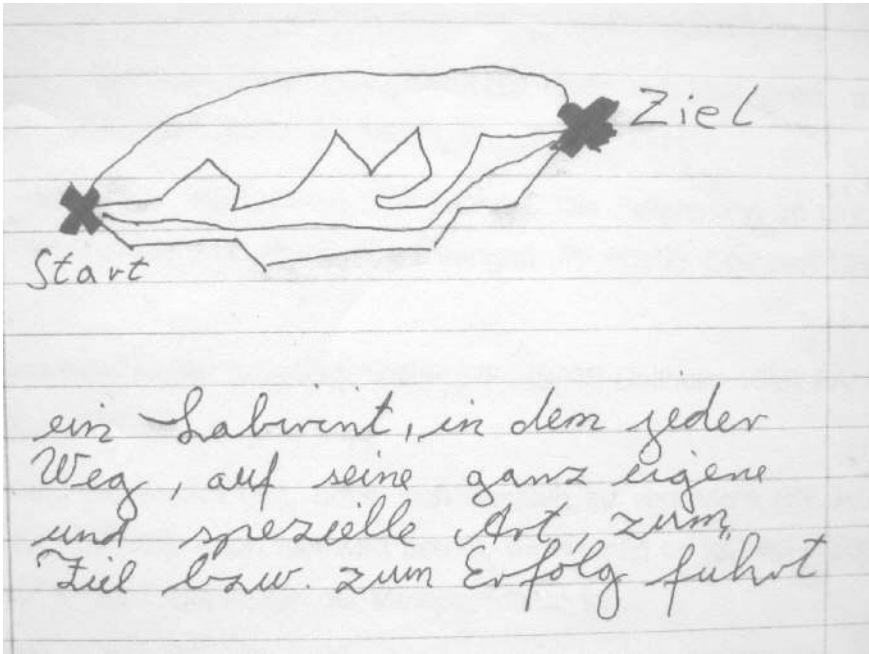 Ziel
Start
ein Labirint, in dem jeder
Weg, auf seine ganz eigene
und spezielle Art, zum
Ziel bzw. zum Erfolg führt